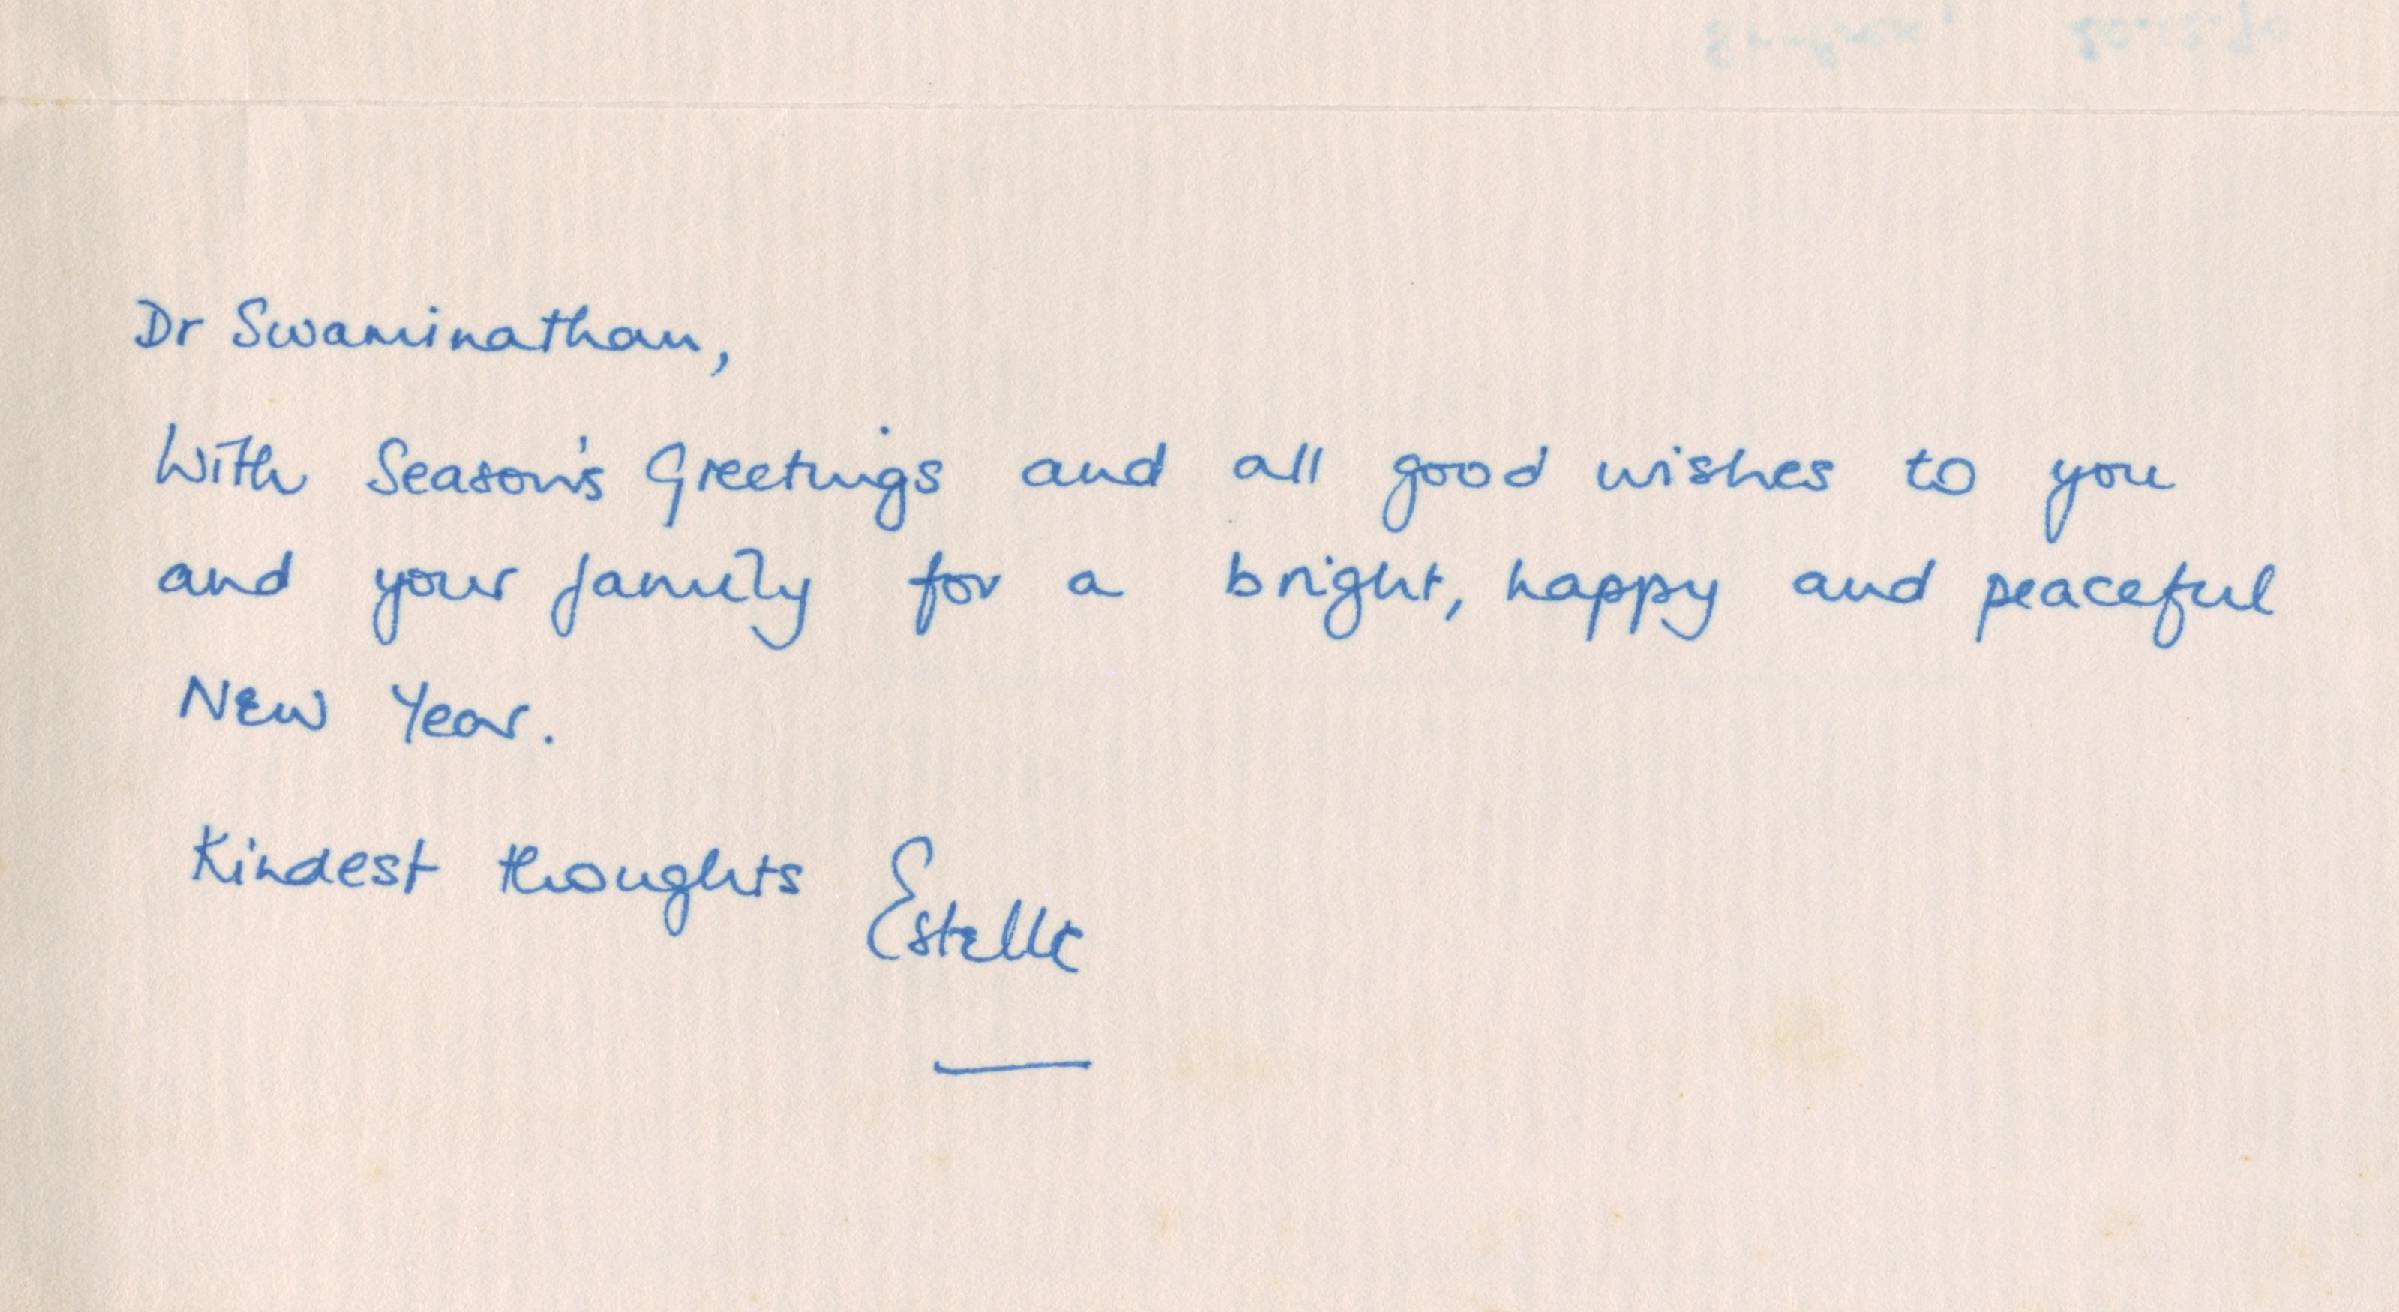 Dr Swaminathan,
With Season's Greetings and all good wishes to you
and your family for a bright, happy and peaceful
New Year.
Kindest thoughts
Estelle